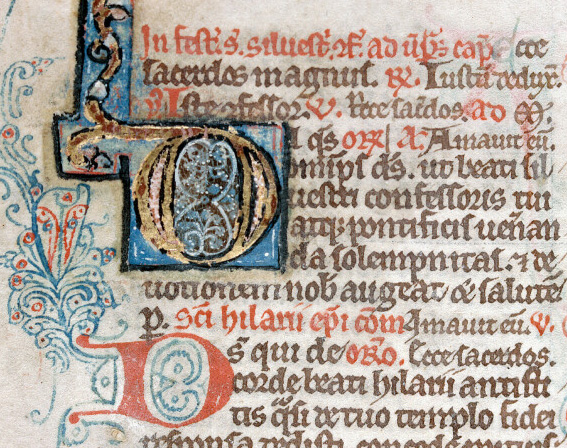 In fest. s. siluest. cf. ad ūps cap. Ecce
sacerdos magnus. R. Iustū deduxit.
ỹ Iste cōfessor. V. Ecce sac̄dos. ad M.
l q̄s orō A. Amauit eū.
Omnip̄s ds̄. ut beati sil
uestri confessoris tui
atq; pontificis uenan
da solempnitas. ⁊ de
uotionem nob̄ augeat. & salutē
p. Sc̄i hilarii ep̄i com Amauit eū. V.
Ds̄ qui de orō. Ecce sacerdos.
corde beati hilarii antisti
tis q̄si de tuo templo fidei
responsa